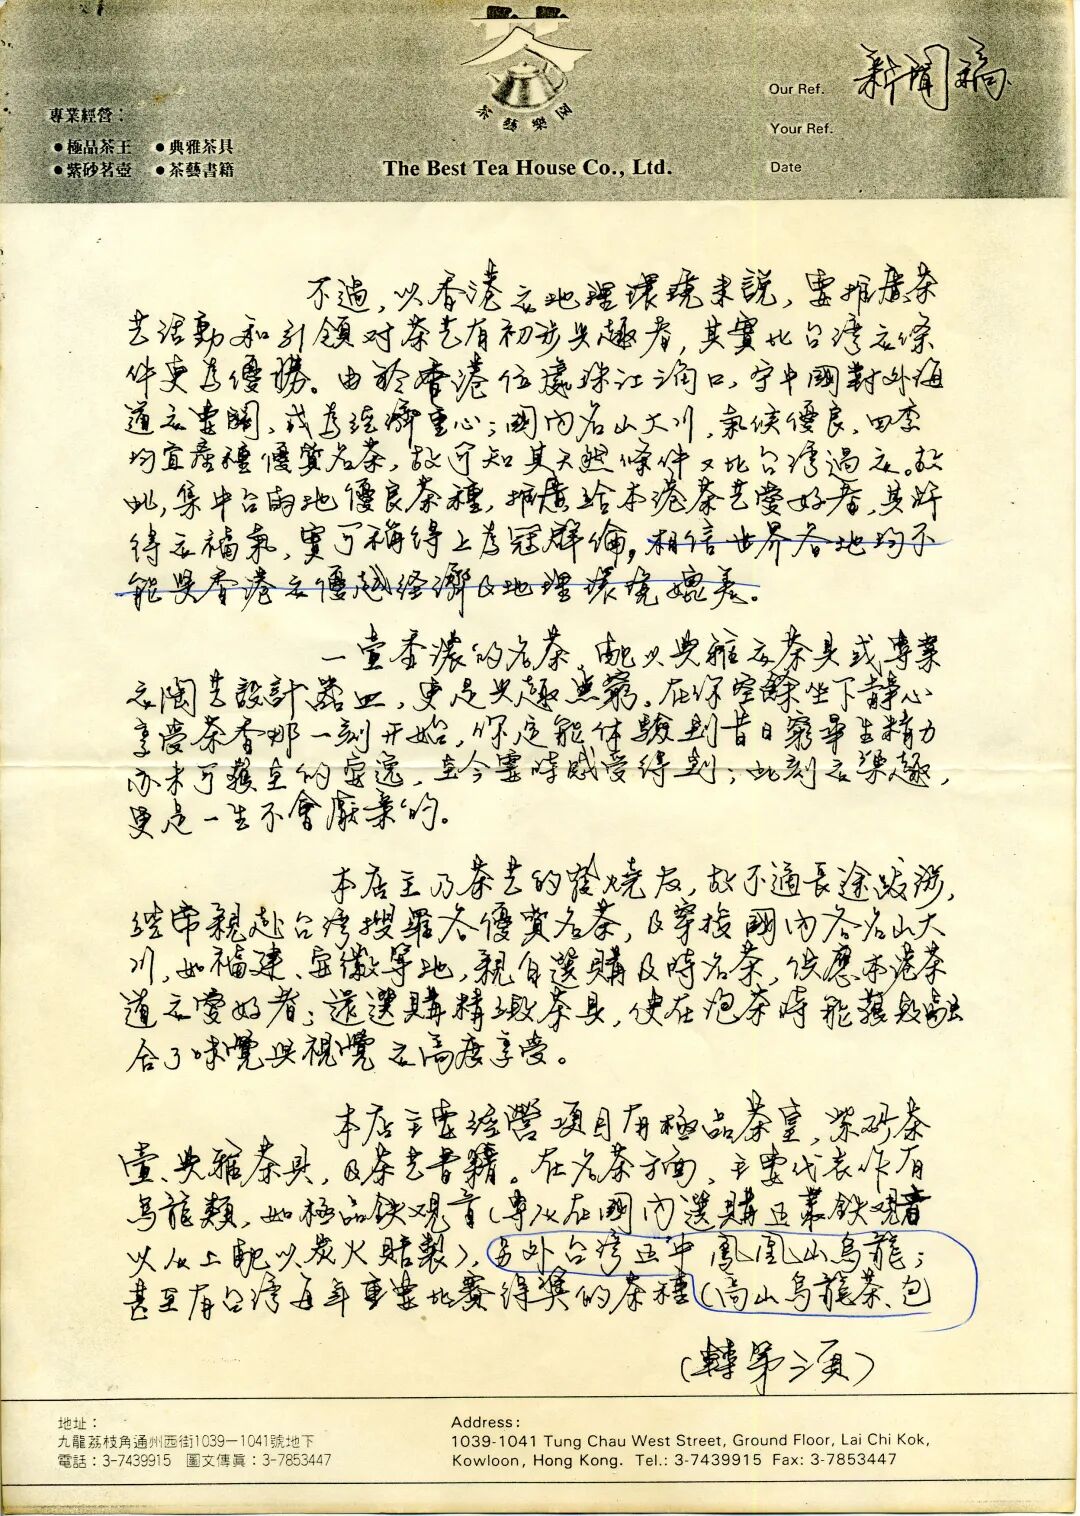 茶
茶藝樂園
The Best Tea House Co., Ltd.
專業經營：
●極品茶王 ●典雅茶具
●紫砂茗壺 ●茶藝書籍
Our Ref. 新聞稿
Your Ref.
Date
不過，以香港之地理環境來說，要推廣茶
艺活動和引領对茶艺有初步兴趣者，其實比台湾之條
件更為優勝。由於香港位處珠江河口，守中國對外海
道之要關，成為經濟重心；國內名山大川，氣候優良，四季
均宜產種優質名茶，故可知其天然條件又比台湾過之。故
此，集中台兩地優良茶種，推廣給本港茶艺愛好者，其所
得之福氣，實可稱得上為冠群倫，相信世界各地均不
能與香港之優越经濟及地理環境媲美。
一壺香濃的名茶，配以典雅之茶具或專業
之陶艺設計器皿，更是兴趣無窮，在你空餘坐下静心
享受茶香那一刻开始，你定能体驗到昔日窮畢生精力
亦未可獲至的安逸，至今霎時感受得到；此刻之樂趣，
更是一生不會厭棄的。
本店主乃茶艺的發燒友，故不適長途跋涉，
經常親赴台湾搜羅各優質名茶，及穿梭國內各名山大
川，如福建、安徽等地，親自選購及時名茶，供應本港茶
道之愛好者；還選購精緻茶具，使在泡茶時能獲致融
合了味覺與視覺之高度享受。
本店主要经營項目有極品茶皇，紫砂茶
壺、典雅茶具，及茶艺書籍。在名茶方面，主要代表作有
烏龍類，如極品鉄观音（專人在國內選購正叢鉄观音
以人上配以炭火焙製），另外台湾正中鳳凰山烏龍；
甚至有台湾每年重要比賽得獎的茶種（高山烏龍茶、包
（轉第三頁）
地址：
九龍荔枝角通州西街1039－1041號地下
電話：3-7439915 圖文傳真：3-7853447
Address:
1039-1041 Tung Chau West Street, Ground Floor, Lai Chi Kok,
Kowloon, Hong Kong. Tel.: 3-7439915 Fax: 3-7853447